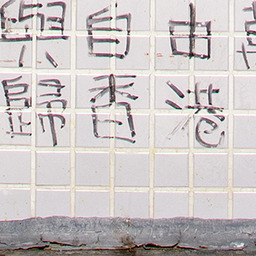 自由
歸香港